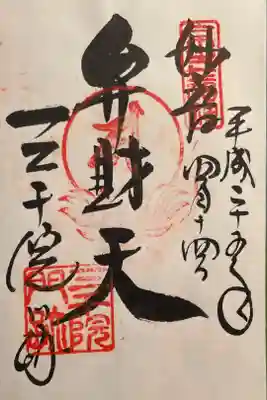 奉拝
平成二十五年
四月十四日
弁財天
三千院